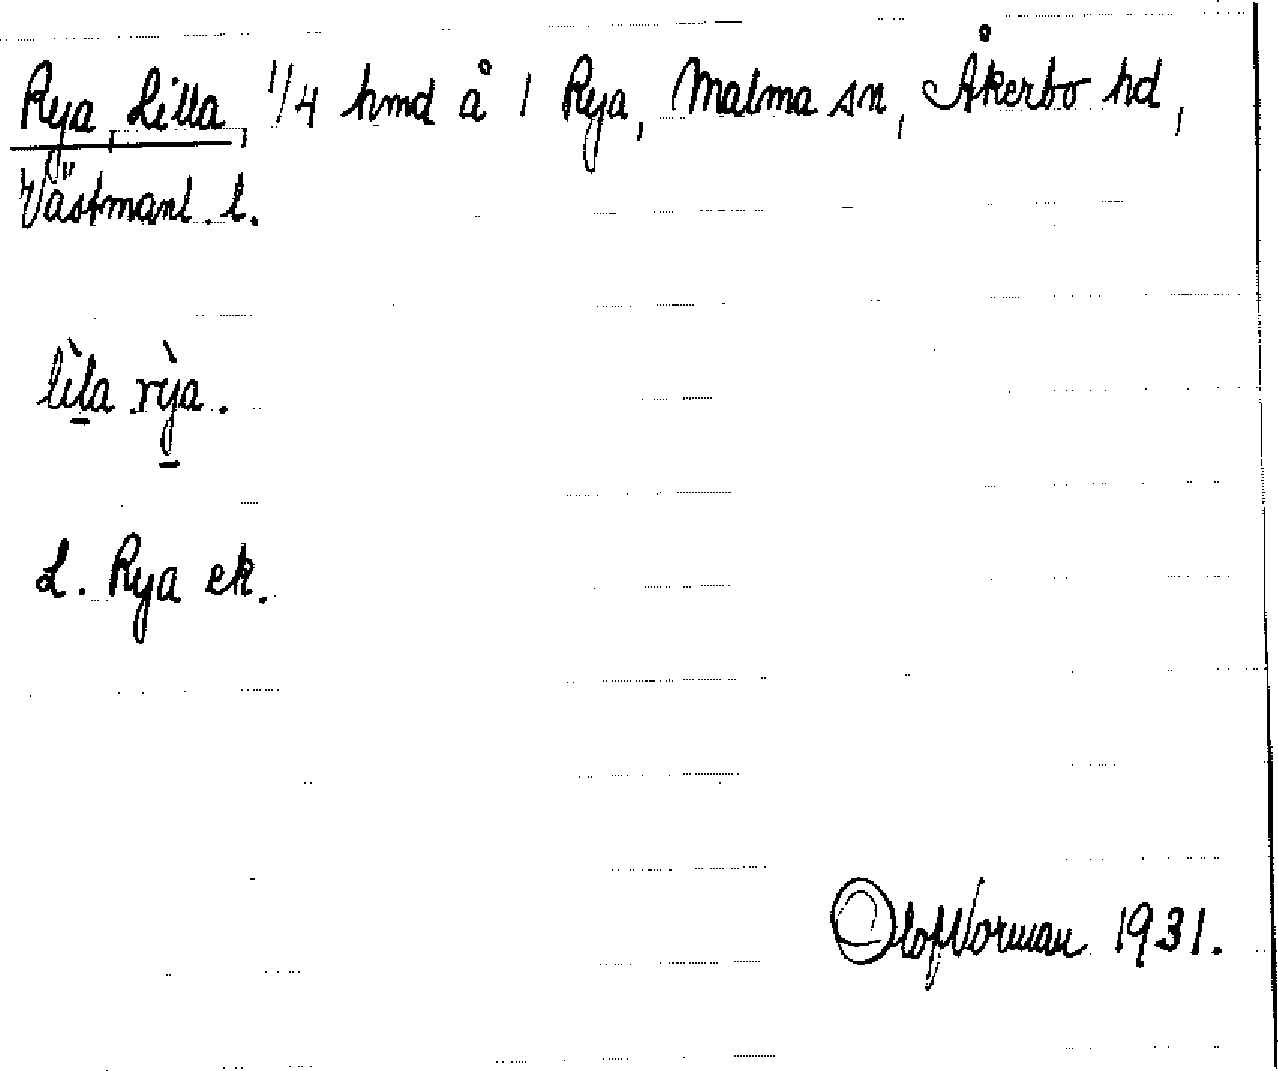 Rya, Lilla, 1/4 hmd å 1 Rya, Malma sn, Åkerbo hd,
Västmanl. l.
lìl̲a rỳ̲a.
L. Rya ek.
Olof Norman 1931.